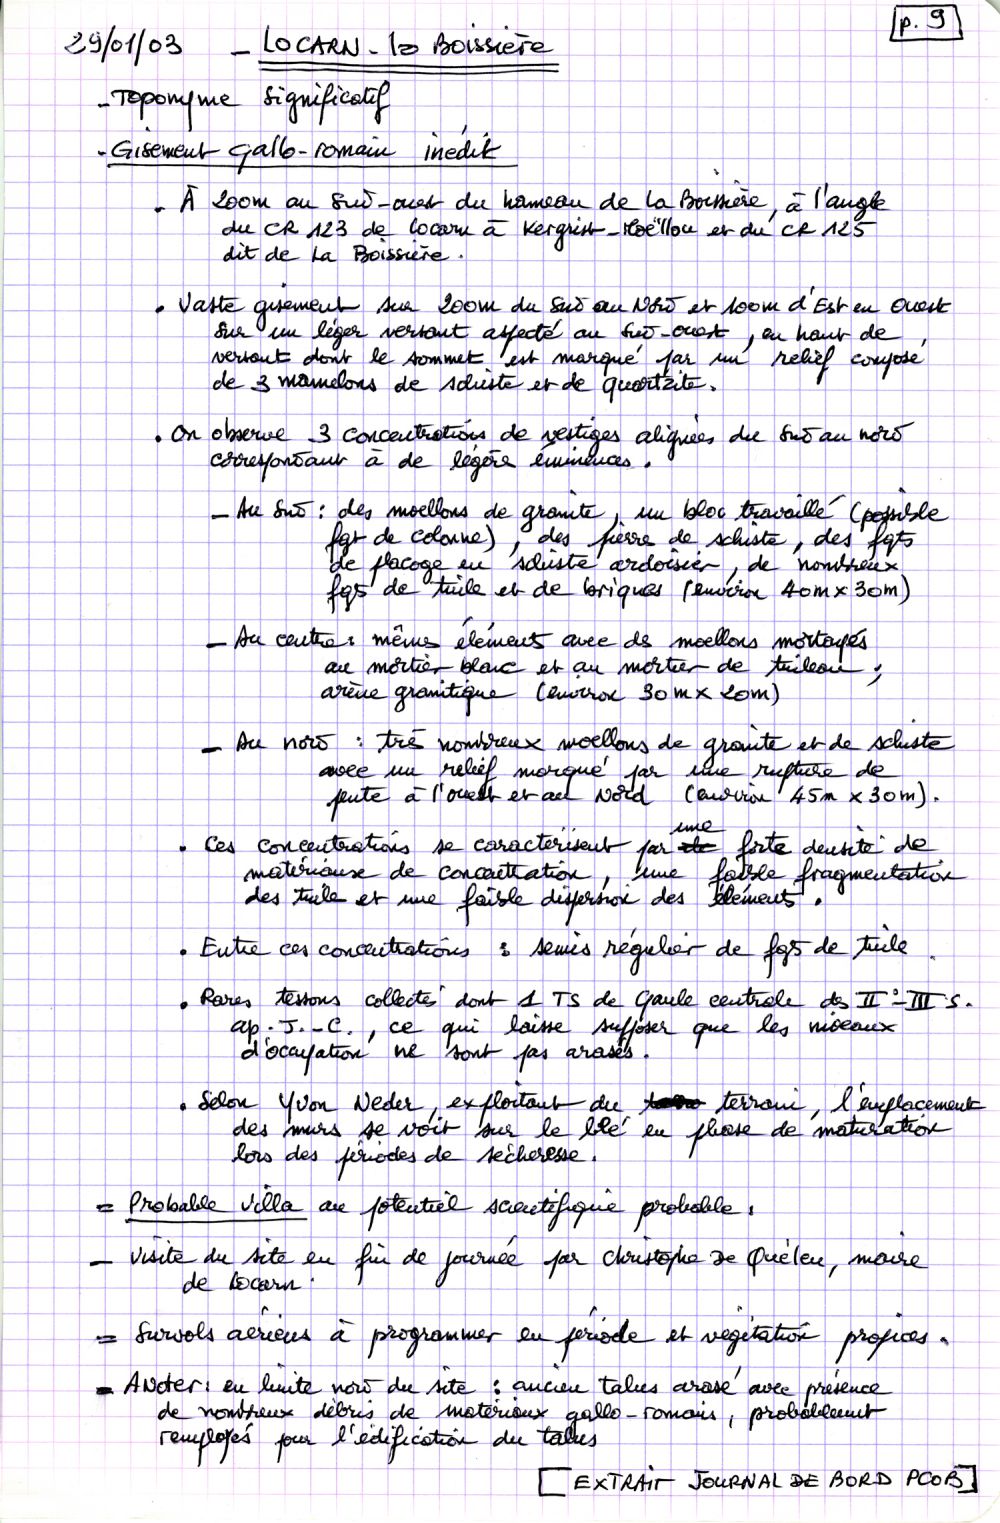 p. 9
29/01/03 - LOCARN - la Boissière
- Toponyme significatif
- Gisement gallo-romain inédit
- À 200m au Sud-ouest du hameau de La Boissière, à l'angle
du CR 123 de Locarn à Kergrist-Moëllou et du CR 125
dit de La Boissière.
• Vaste gisement sur 200m du Sud au Nord et 100m d'Est en Ouest
sur un léger versant aspecté au Sud-ouest, en haut de
versant dont le sommet est marqué par un relief composé
de 3 mamelons de schiste et de quartzite.
• On observe 3 concentrations de vestiges alignées du Sud au nord
correspondant à de légère éminences.
- Au Sud : des moellons de granite, un bloc travaillé (possible
fgt de colonne), des pierre de schiste, des fgts
de placage en schiste ardoisier, de nombreux
fgs de tuile et de briques (environ 40m x 30m)
- Au centre : même élément avec des moellons mortayés
au mortier blanc et au mortier de tuileau ;
arène granitique (environ 30m x 20m)
- Au nord : très nombreux moellons de granite et de schiste
avec un relief marqué par une rupture de
pente à l'ouest et au Nord (environ 45m x 30m).
• Ces concentrations se caractérisent par une forte densité de
matériaux de concentration, une faible fragmentation
des tuile et une faible dispersion des éléments.
• Entre ces concentrations : semis régulier de fgs de tuile.
• Rares tessons collectés dont 1 TS de Gaule centrale des II°-III s.
ap. J.-C., ce qui laisse supposer que les niveaux
d'occupation ne sont pas arasés.
• Selon Yvon Neder, exploitant du terrain, l'emplacement
des murs se voit sur le blé en phase de maturation
lors des périodes de sécheresse.
= Probable villa au potentiel scientifique probable.
- Visite du site en fin de journée par Christophe De Quélen, maire
de Locarn.
= Survols aériens à programmer en période et végétation propices.
- A Noter : en limite nord du site : ancien talus arasé avec présence
de nombreux débris de matériaux gallo-romais, probablement
remployés pour l'édification du talus
[EXTRAIT JOURNAL DE BORD PCOB]